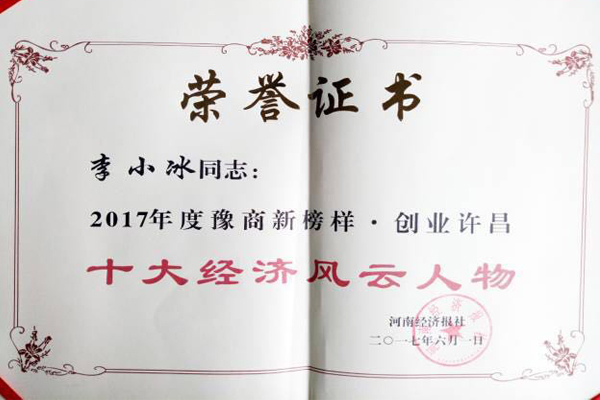 荣誉证书
李小冰同志：
2017年度豫商新榜样·创业许昌
十大经济风云人物
河南经济报社
二〇一七年六月一日